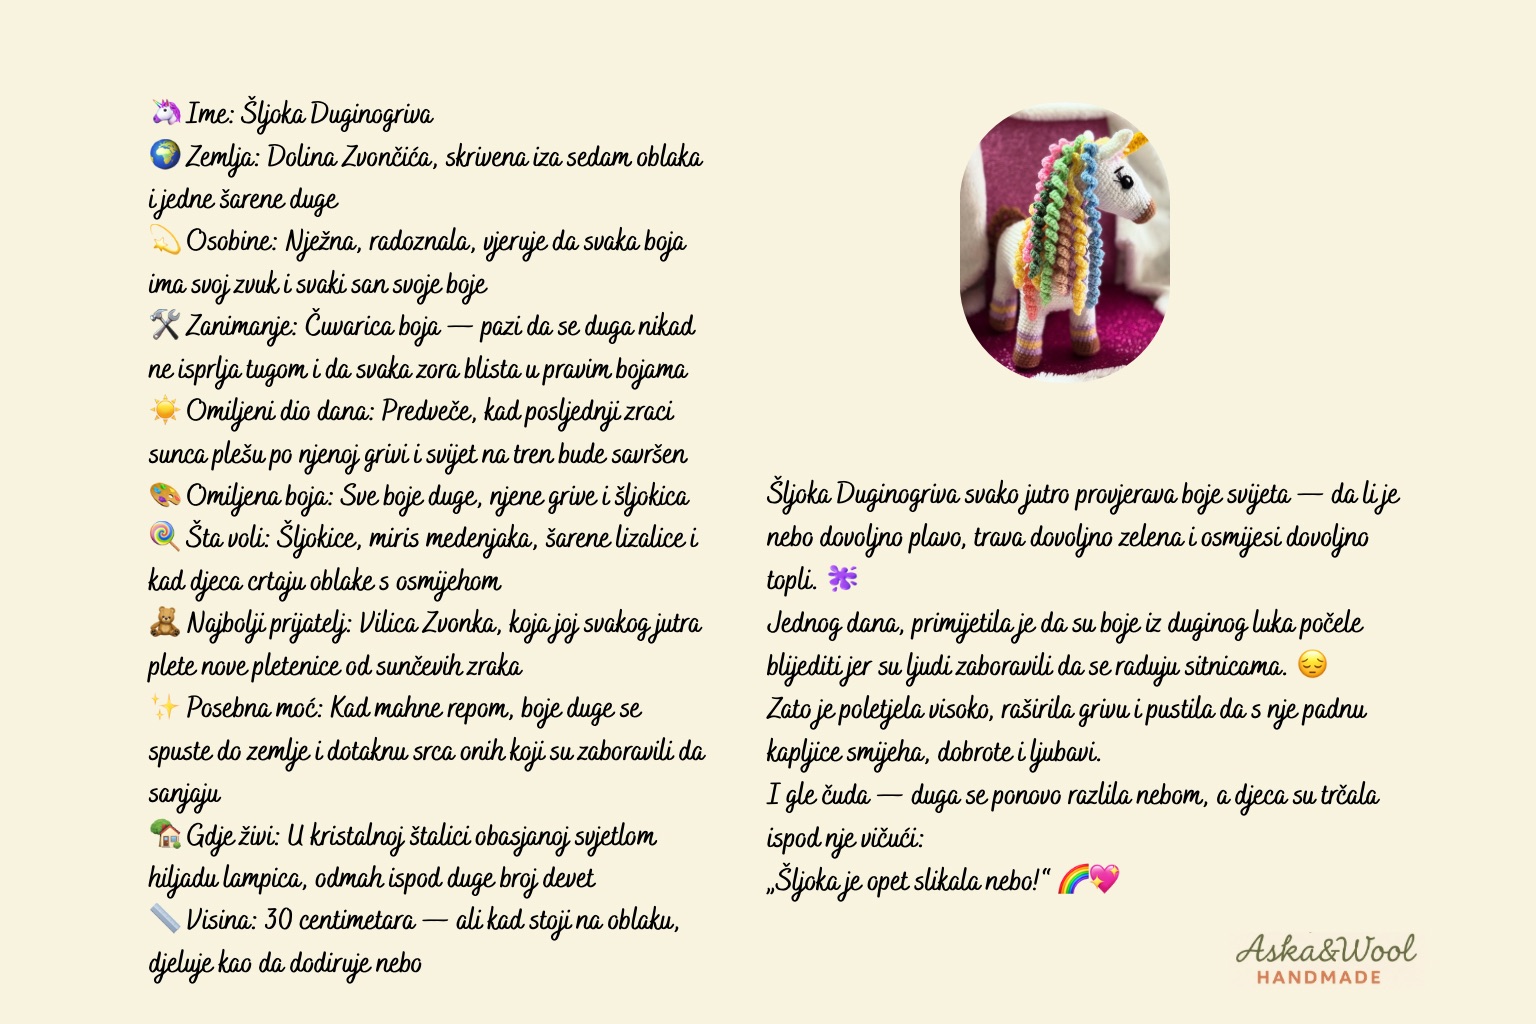 🦄 Ime: Šljoka Duginogriva
🌍 Zemlja: Dolina Zvončića, skrivena iza sedam oblaka
i jedne šarene duge
💫 Osobine: Nježna, radoznala, vjeruje da svaka boja
ima svoj zvuk i svaki san svoje boje
🛠️ Zanimanje: Čuvarica boja — pazi da se duga nikad
ne isprlja tugom i da svaka zora blista u pravim bojama
☀️ Omiljeni dio dana: Predveče, kad posljednji zraci
sunca plešu po njenoj grivi i svijet na tren bude savršen
🎨 Omiljena boja: Sve boje duge, njene grive i šljokica
🍭 Šta voli: Šljokice, miris medenjaka, šarene lizalice i
kad djeca crtaju oblake s osmijehom
🧸 Najbolji prijatelj: Vilica Zvonka, koja joj svakog jutra
plete nove pletenice od sunčevih zraka
✨ Posebna moć: Kad mahne repom, boje duge se
spuste do zemlje i dotaknu srca onih koji su zaboravili da
sanjaju
🏡 Gdje živi: U kristalnoj štalici obasjanoj svjetlom
hiljadu lampica, odmah ispod duge broj devet
📏 Visina: 30 centimetara — ali kad stoji na oblaku,
djeluje kao da dodiruje nebo
Šljoka Duginogriva svako jutro provjerava boje svijeta — da li je
nebo dovoljno plavo, trava dovoljno zelena i osmijesi dovoljno
topli.
Jednog dana, primijetila je da su boje iz duginog luka počele
blijediti jer su ljudi zaboravili da se raduju sitnicama. 😔
Zato je poletjela visoko, raširila grivu i pustila da s nje padnu
kapljice smijeha, dobrote i ljubavi.
I gle čuda — duga se ponovo razlila nebom, a djeca su trčala
ispod nje vičući:
„Šljoka je opet slikala nebo!“ 🌈💖
Aska&Wool
HANDMADE